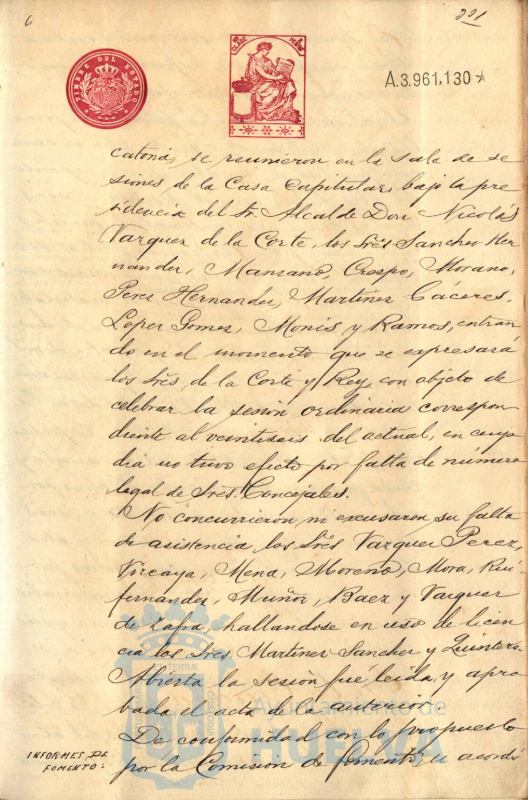 6
221
TIMBRE DEL ESTADO
A.3.961.130*
catorce, se reunieron en la sala de se
siones de la Casa Capitular, bajo la pre
sidencia del Sr. Alcalde Don Nicolás
Vazquez de la Corte, los Sres Sanchez Her
nandez, Manzano, Crespo, Morano,
Perez Hernandez, Martinez Cáceres,
Lopez Gomez, Monis y Ramos, entran
do en el momento que se expresará
los Sres de la Corte y Rey, con objeto de
celebrar la sesión ordinaria correspon
diente al veintiseis del actual, en cuyo
dia no tuvo efecto por falta de número
legal de Sres Concejales.
No concurrieron ni excusaron su falta
de asistencia los Sres Vazquez Perez,
Vizcaya, Mena, Moreno, Mora, Rui
fernandez, Muñoz, Baez y Vazquez
de Zafra, hallandose en uso de licen
cia los Sres Martinez Sanchez y Quintero.
Abierta la sesión fué leida y apro
bada el acta de la anterior.
De conformidad con lo propuesto
INFORMES DE
FOMENTO:
por la Comision de fomento, se acordó
Ayuntamiento de
HUELVA